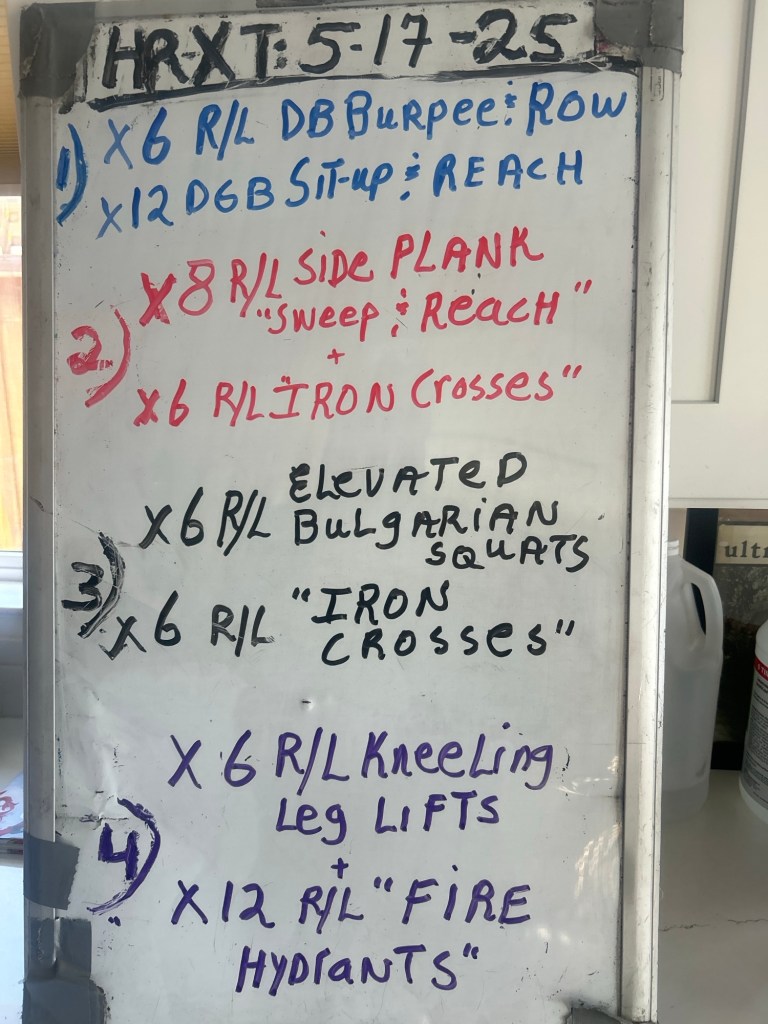 HR-XT: 5-17-25
1) X6 R/L DB BURPEE & ROW
X12 DGB SIT-UP & REACH
2) X8 R/L SIDE PLANK
"SWEEP & REACH"
+
X6 R/L "IRON CROSSES"
3) X6 R/L ELEVATED
BULGARIAN
SQUATS
X6 R/L "IRON
CROSSES"
4) X 6 R/L KNEELING
LEG LIFTS
+
X 12 R/L "FIRE
HYDRANTS"